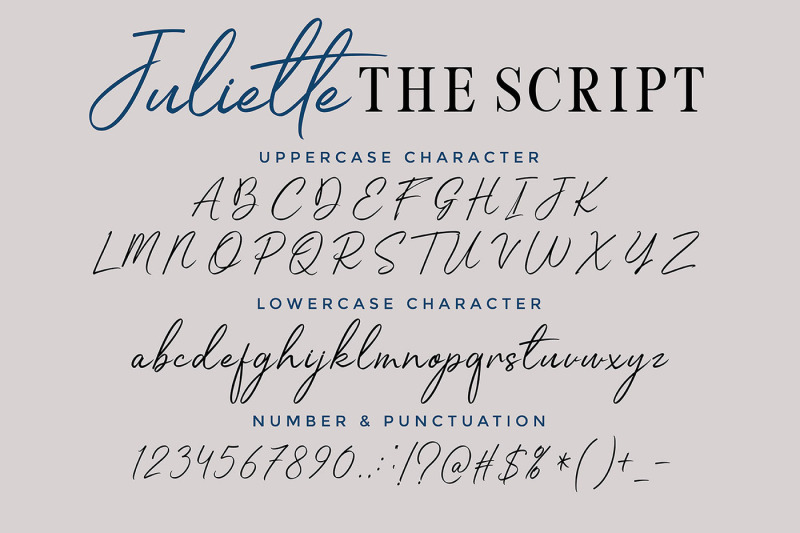 Juliette THE SCRIPT
UPPERCASE CHARACTER
ABCDEFGHIJK
LMNOPQRSTUVWXYZ
LOWERCASE CHARACTER
abcdefghijklmnopqrstuvwxyz
NUMBER & PUNCTUATION
1234567890.,:;!?@#$%*()+_-